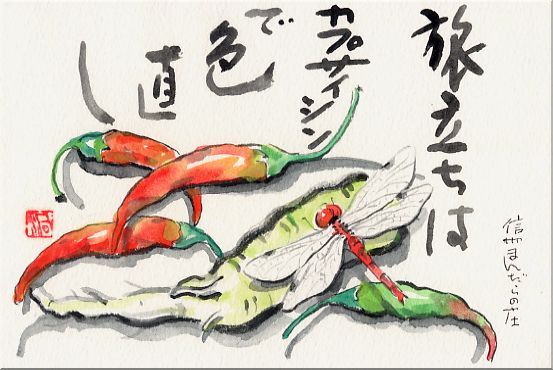 旅立ちは
カプサイシン
で
色
直
し
信州まんだらの庄